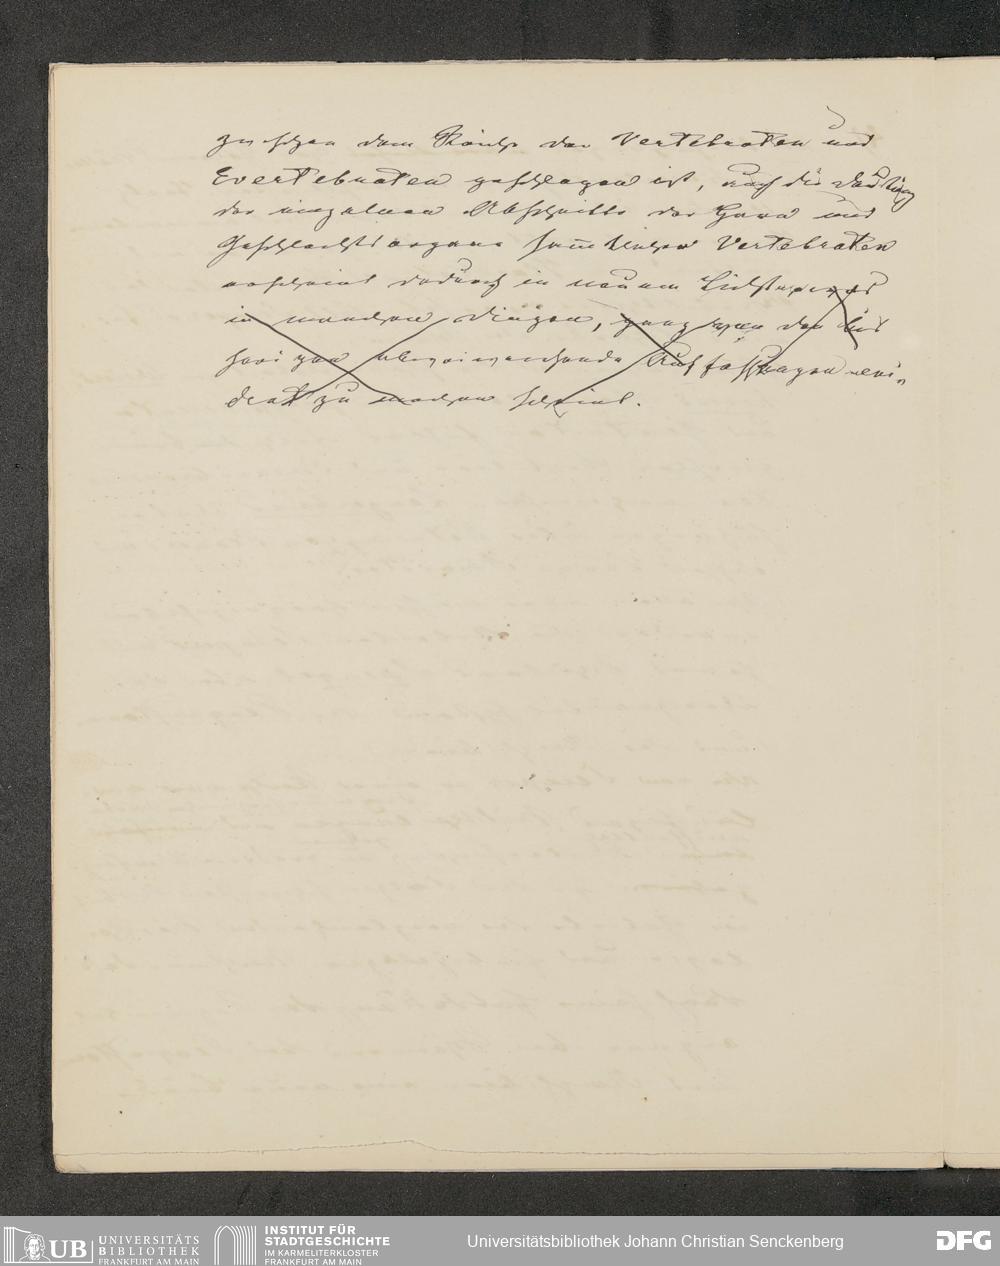 zwischen dem Reiche der Vertebraten und
Evertebraten geschlagen ist, auch die Deutung
der einzelnen Abschnitte der Harn und
Geschlechtsorgane sämtlicher Vertebraten
erscheint dadurch in neuem Licht
in manchen Dingen, ganz von der bis
herigen abweichende Auffassungen
zu machen scheint.
UB UNIVERSITÄTS
BIBLIOTHEK
FRANKFURT AM MAIN
INSTITUT FÜR
STADTGESCHICHTE
IM KARMELITERKLOSTER
FRANKFURT AM MAIN
Universitätsbibliothek Johann Christian Senckenberg
DFG